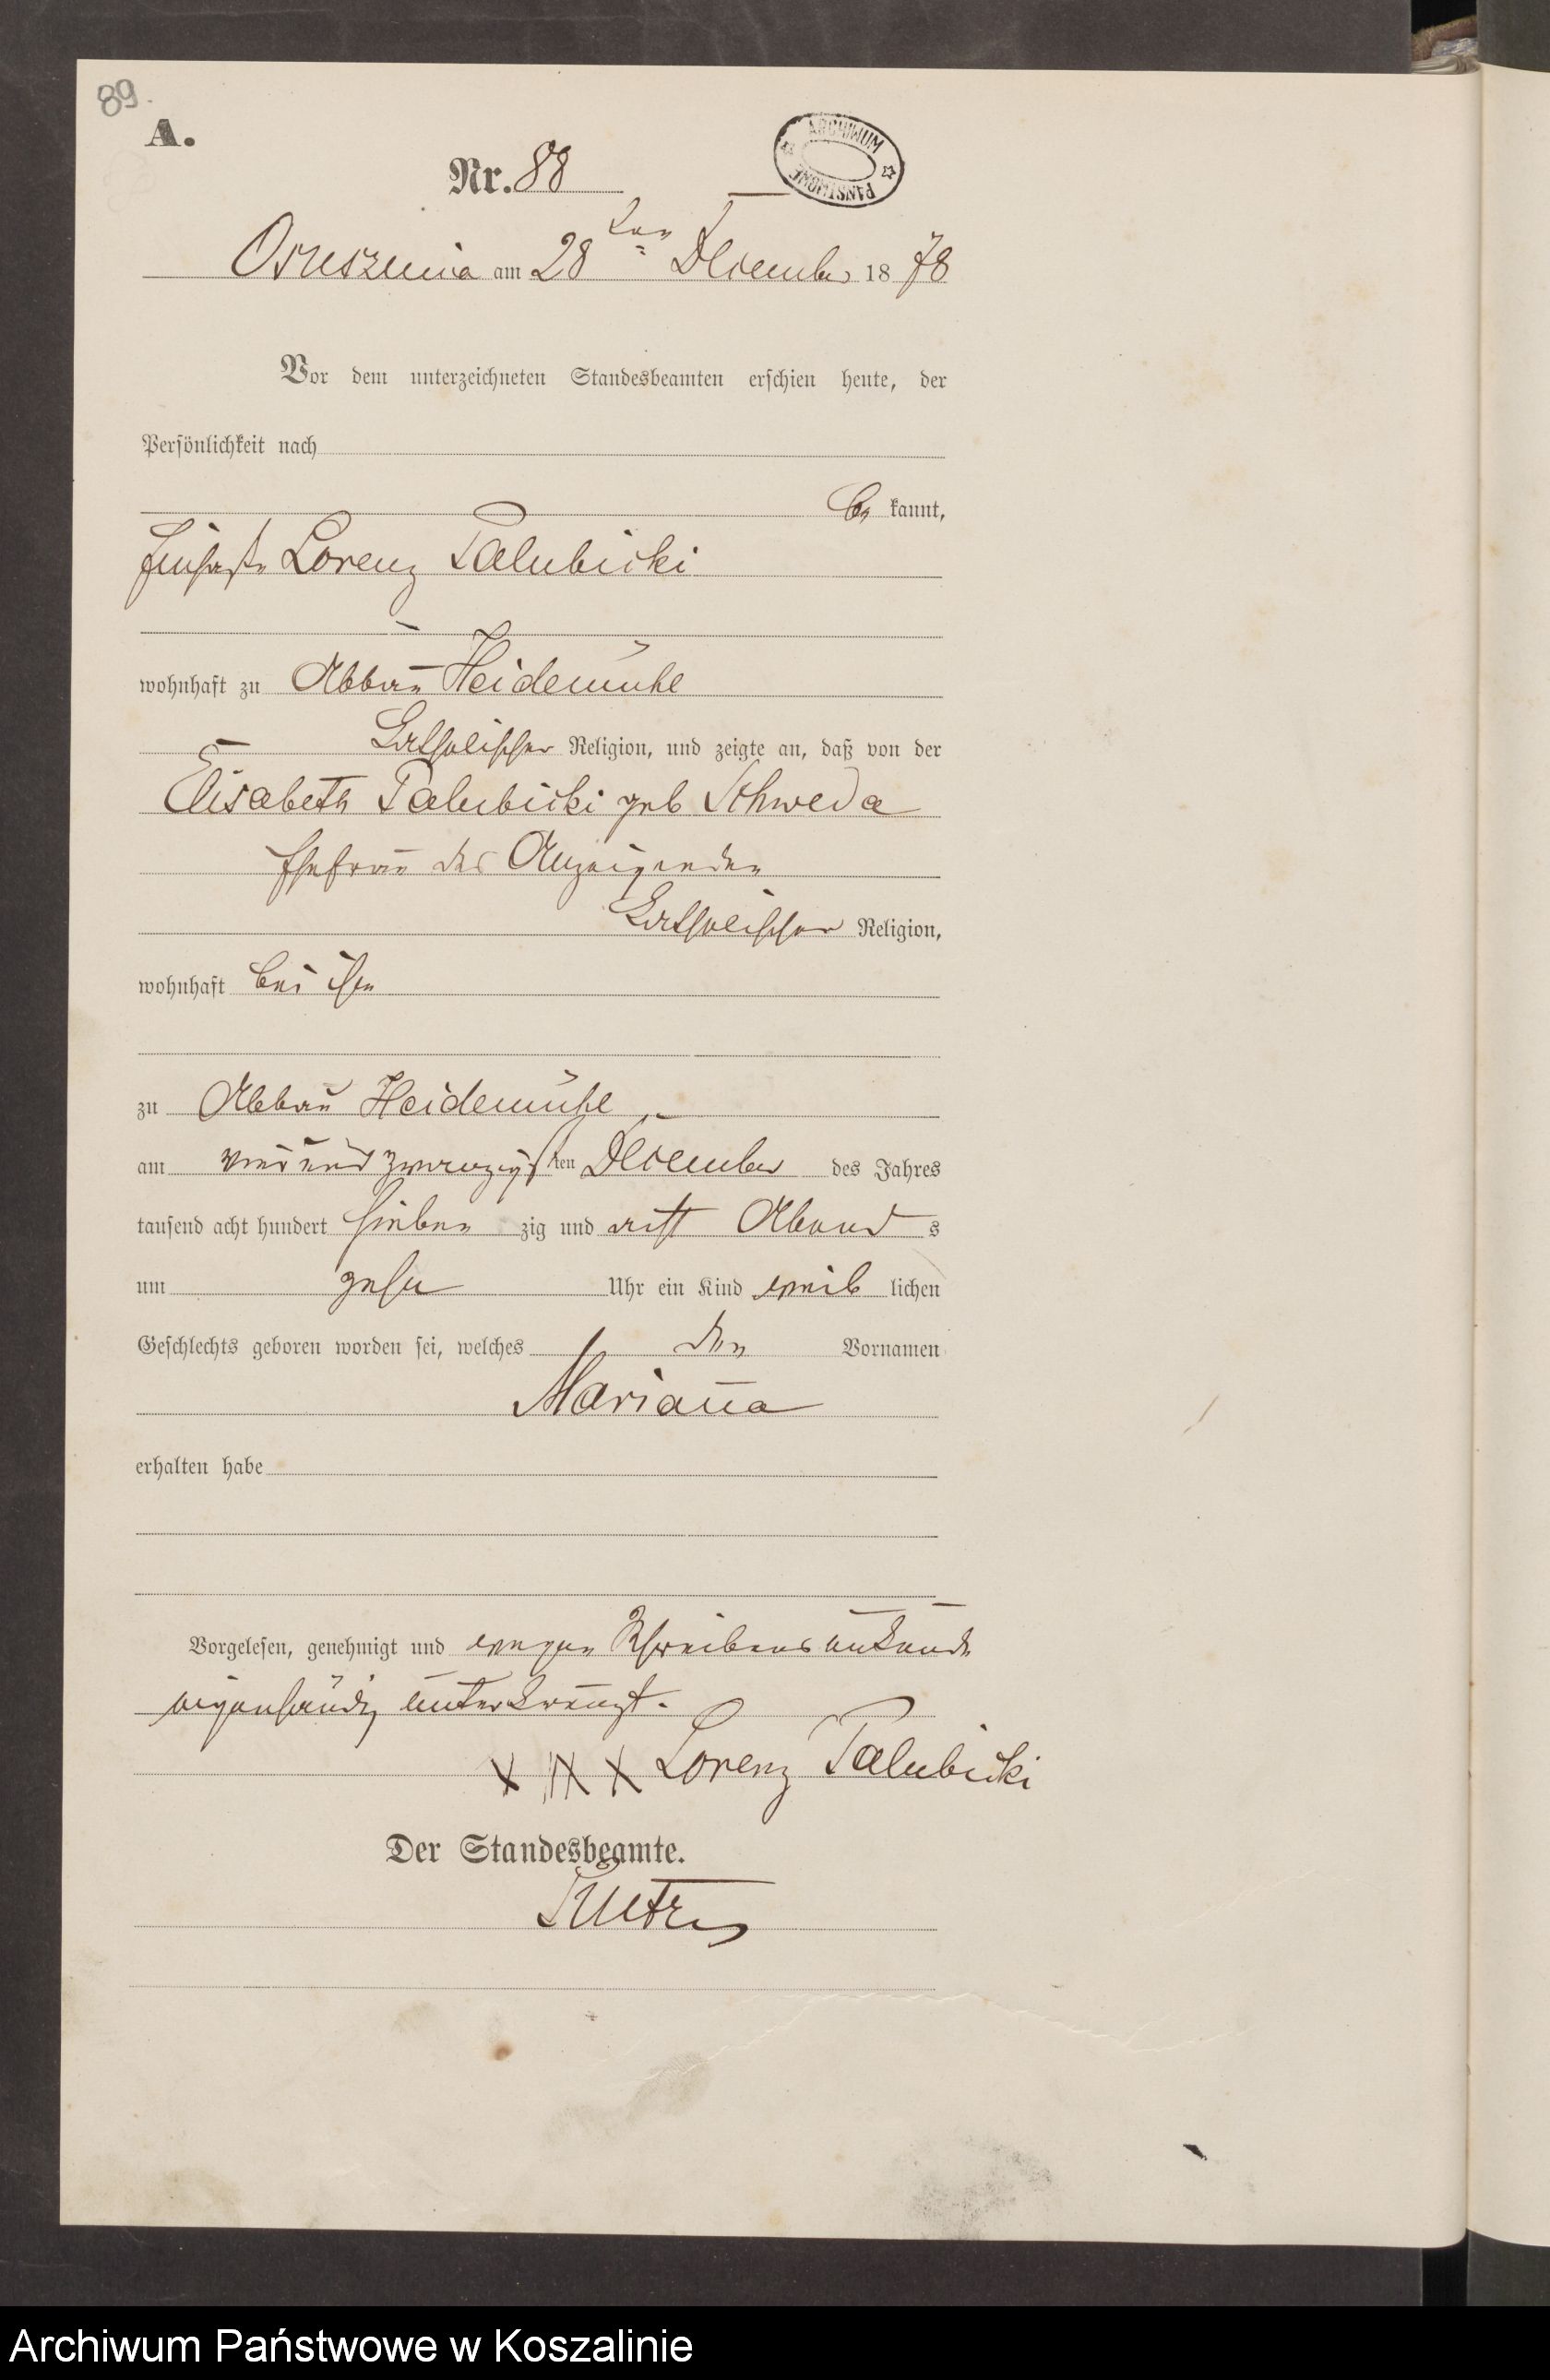 89.
A.
ARCHIWUM PAŃSTWOWE
Nr. 88
Osuszniza am 28ten December 1878
Vor dem unterzeichneten Standesbeamten erschien heute, der
Persönlichkeit nach
be kannt,
Lorenz Palubicki
wohnhaft zu Abbau Heidemühl
katholischer Religion, und zeigte an, daß von der
Elisabeth Palubicki geb Schweda
Ehefrau des Anzeigenden
katholischer Religion,
wohnhaft bei ihm
zu Abbau Heidemühl
am vier und zwanzigsten December des Jahres
tausend acht hundert sieben zig und acht Abend s
um zehn Uhr ein Kind weib lichen
Geschlechts geboren worden sei, welches den Vornamen
Mariana̅
erhalten habe
Vorgelesen, genehmigt und wegen Schreibensunkunde
eigenhändig unterkreuzt.
X X X Lorenz Palubicki
Der Standesbeamte.
Archiwum Państwowe w Koszalinie